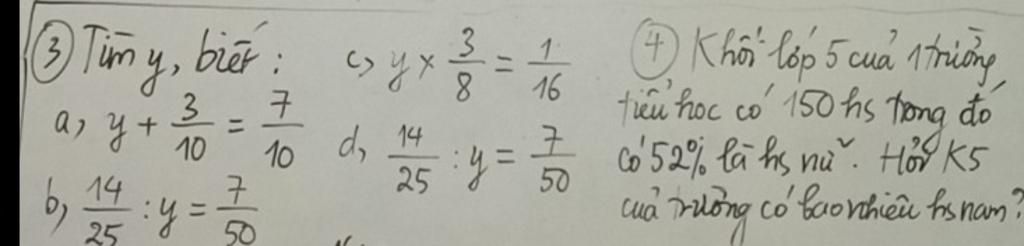 ③ Tìm y, biết:
a, y + 3/10 = 7/10
b, 14/25 : y = 7/50
c, y × 3/8 = 1/16
d, 14/25 : y = 7/50
④ Khối lớp 5 của 1 trường
tiểu học có 150 hs trong đó
có 52% là hs nữ. Hỏi K5
của trường có bao nhiêu hs nam?